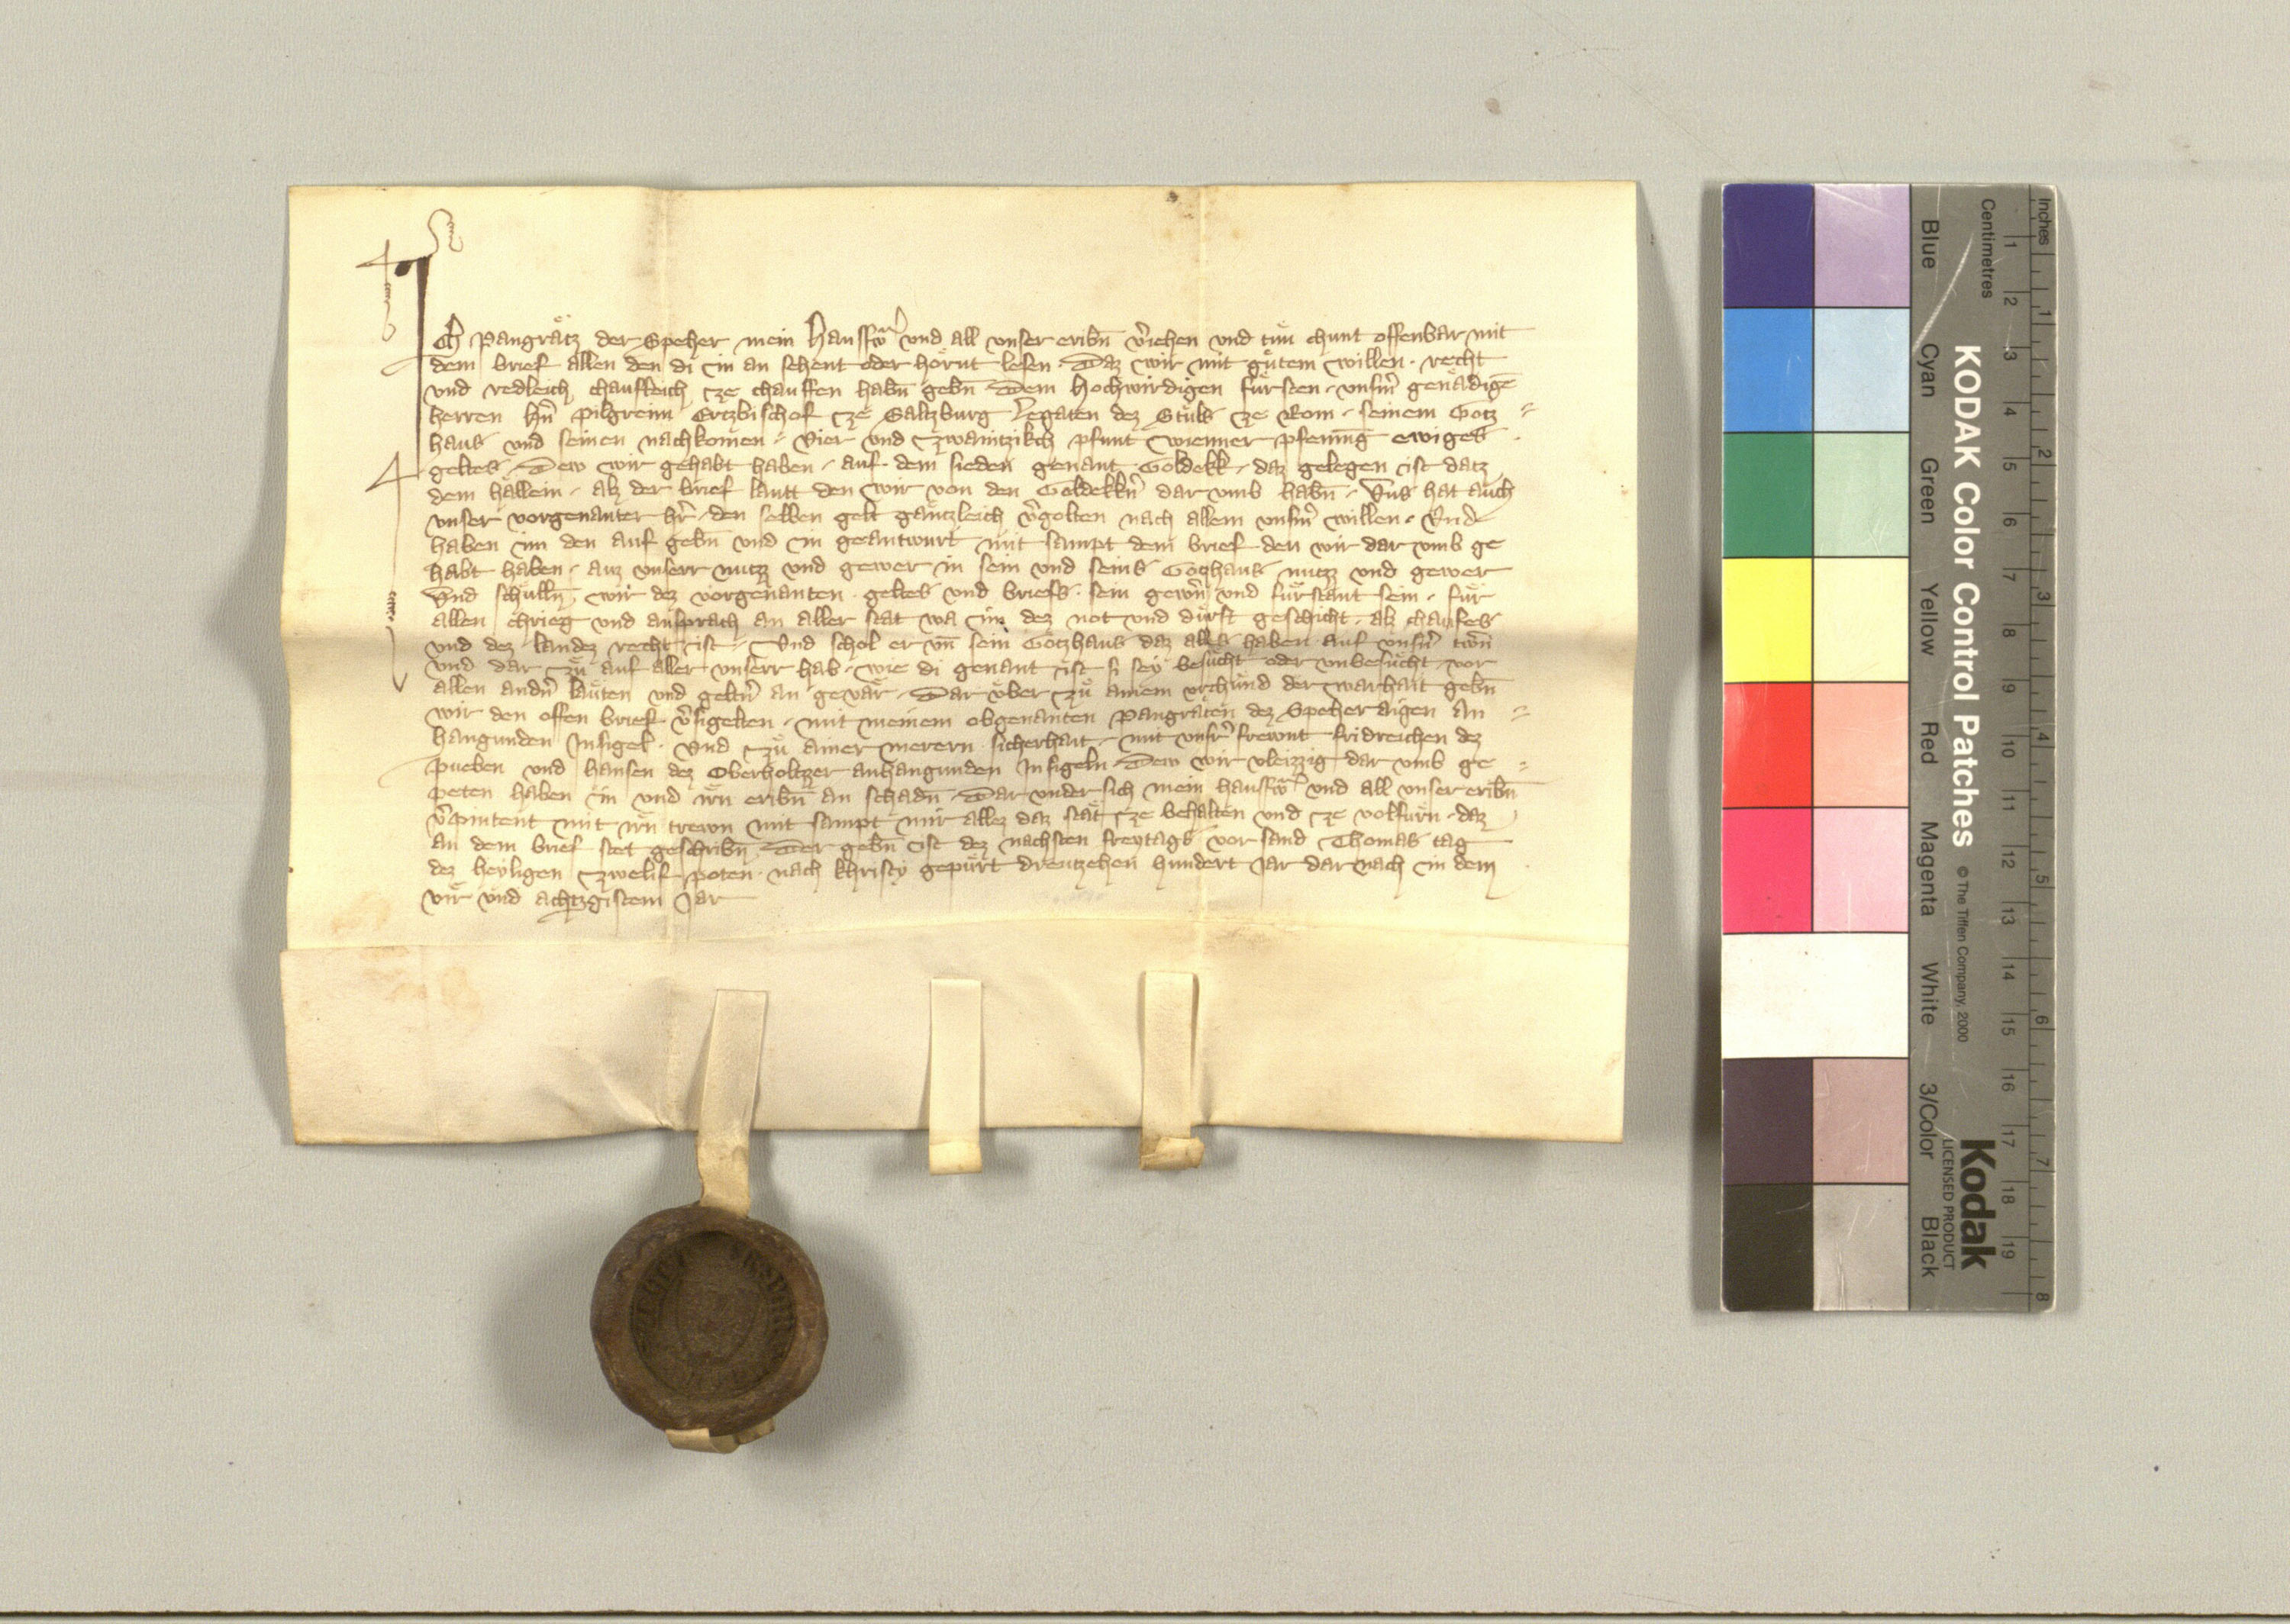 Ich Pangrätz der Speher mein Hausfrw̄ und all unser eribn̄ v̄iehen und tůn chunt offenbar mit
dem brief allen den di in an sehent oder hörnt lesen Daz wir mit gůtem willen recht
und redleich chaufleich cze chauffen habn̄ gebn̄ Dem Hochwirdigen fürsten unsm̄ genädigē
herren hn̄ Pilgreim Ertzbischof cze Saltzburg Legaten dez Stůls cze Rom seinem Gotz =
haus und seinen nachkomen Vier und Czwaintzikch pfunt wienner pfening ewiges
geltes Dew wir gehabt haben auf dem sieden genant Goldekk daz gelegen ist datz
dem hällein alz der brief lautt den wir von den Goldekkn̄ dar umb habn̄ Uns hat auch
unser vorgenanter hr̄ den selben gelt gäntzleich v̄golten nach allem unsm̄ willen Und
haben im den auf gebn̄ und in geantwurt mit sampt dem brief den wir dar umb ge
habt haben auz unserr nutzz und gewer in sein und seins Gotzhaus nutzz und gewer
Und schülln̄ wir dez vorgenanten geltes und briefs sein gewn̄ und fürstant sein für
allen chrieg und ansprach an aller stat wa im dez not und dürft geschicht alz chaufes
und dez landez recht ist Und schol er un̄ sein Gotzhaus daz alles haben auf unsn̄ twn̄
und dar czů auf aller unserr hab wie di genant ist si sey besücht oder unbesücht vor
allen andn̄ läuten und geltn̄ an gevär Dar über czů ainem urchünd der warhait gebn̄
wir den offen brief v̄sigelten mit meinem obgenanten Pangräten dez Speher aigen An =
hangunden Insigel Und czů ainer merern sicherhait mit unsr̄ frewnt fridreichen dez
pueben und hansen dez Oberholtzer anhangunden Insigeln Dew wir vleizzig dar umb ge =
peten haben in und irn eribn̄ an schadn̄ Dar under sich mein hausfrw̄ und all unser eribn̄
v̄pintent mit irn trewn mit sampt mir allez daz stät cze behalten und cze volfürn daz
an dem brief stet geschribn̄ Der gebn̄ ist dez nachsten freytags vor sand Thomas tag
dez heyligen czwelif poten nach Christy gepürt dreutzehen hundert Jar dar nach in dem
vir und achtzgistem Jar
KODAK Color Control Patches
© The Tiffen Company, 2000
Kodak
LICENSED PRODUCT
Blue Cyan Green Yellow Red Magenta White 3/Color Black
Centimetres 1 2 3 4 5 6 7 8 9 10 11 12 13 14 15 16 17 18 19
Inches 1 2 3 4 5 6 7 8